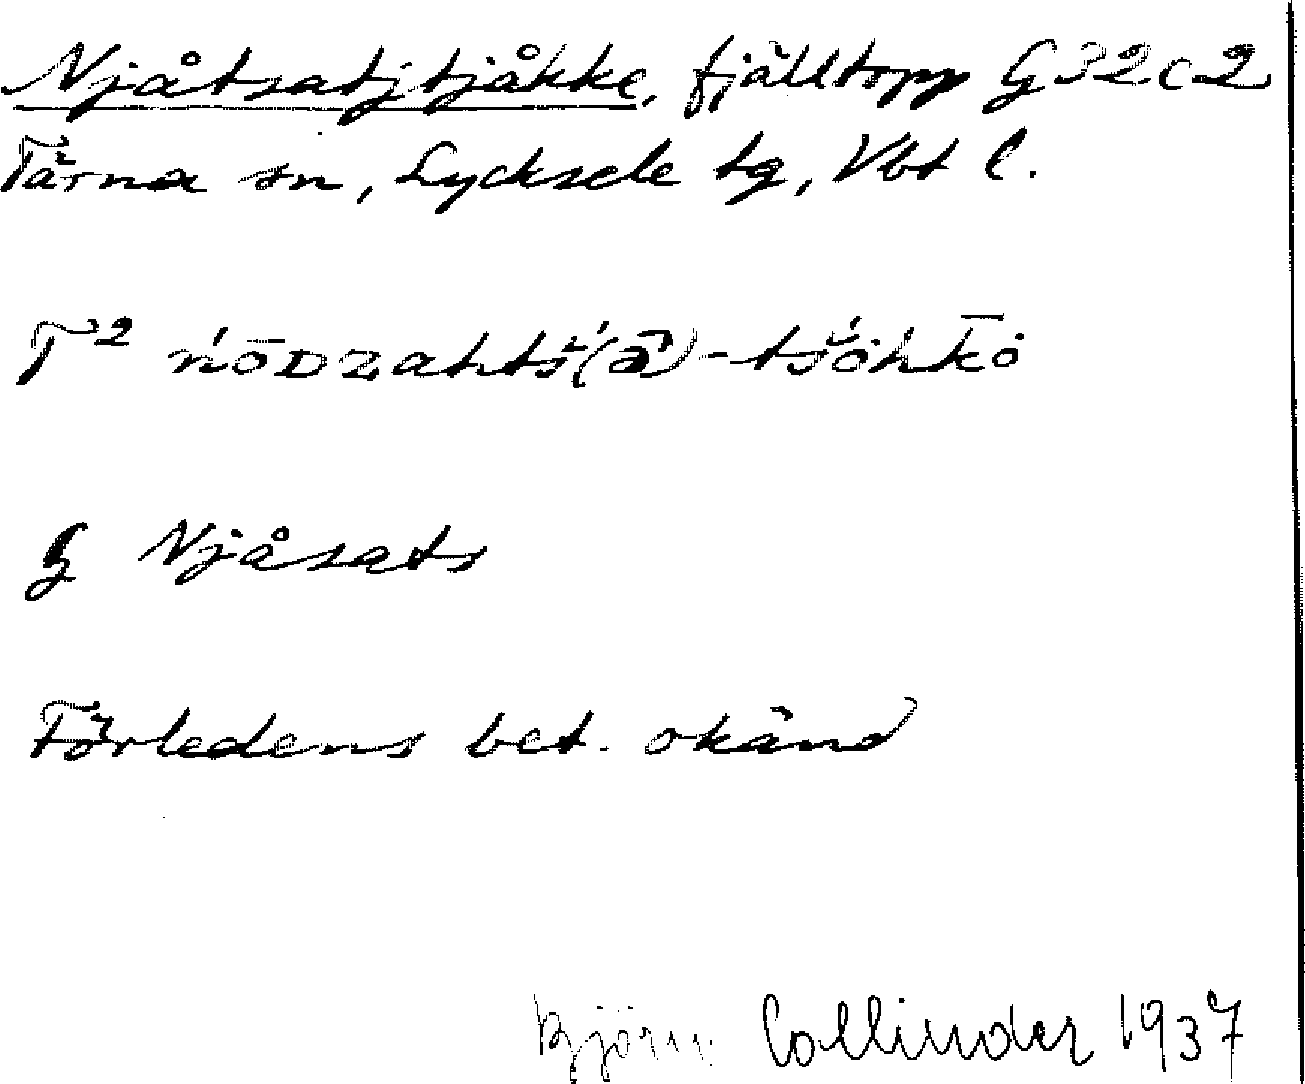 Njåtsatjtjåkke, fjälltopp G32c2
Tärna sn, Lycksele tg, Vbt l.
T² ńōᴅzahtś(ā)-tśåhkå
G Njåsats
Förledens bet. okänd
Björn Collinder 1937